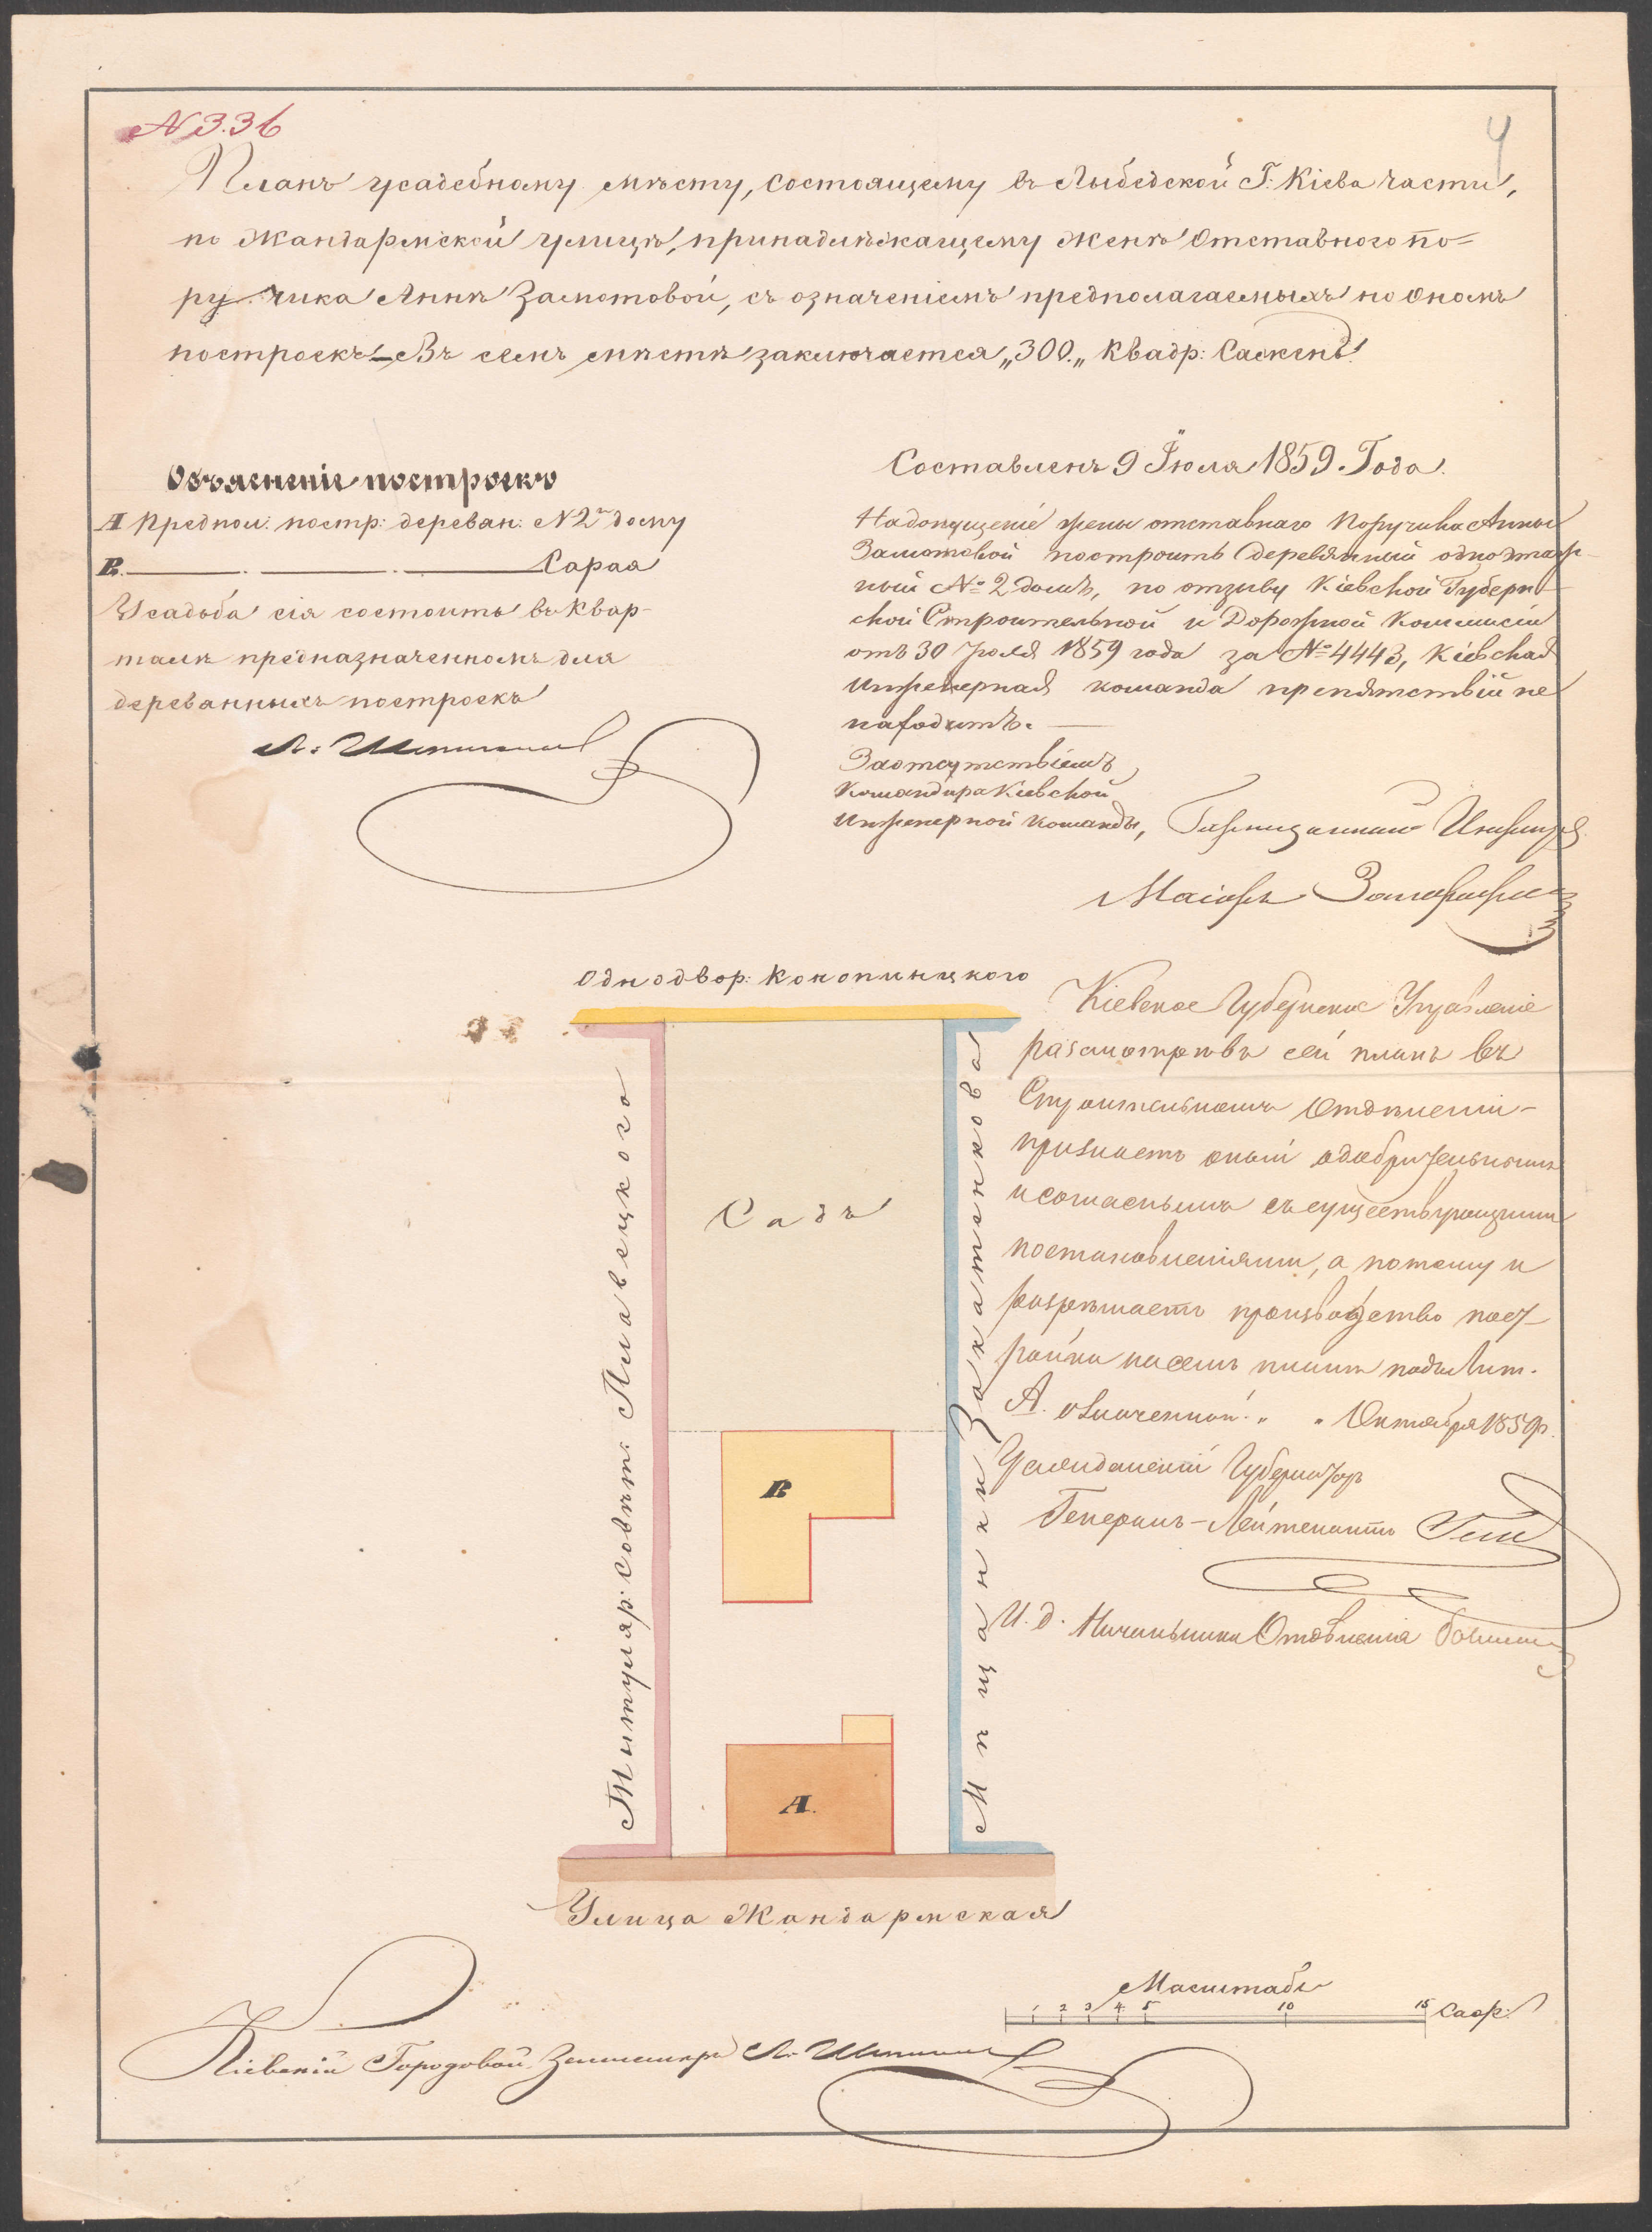 N 336
4
Планъ усадебному мѣсту, состоящему въ Лыбедской Г: Кіева части,
по Жандармской улицѣ, принадлѣжащему Женѣ Отставного по=
ручика Аннѣ Замотовой, съ означеніемъ предполагаемыхъ но ономъ
построекъ – Въ семъ мѣстѣ заключается „300„ Квадр: Саженъ
Объясненіе построекъ
А Предпол: постр: дереван: N 2го дому
В. Сарая
Усадьба сія состоитъ въ Квар-
талѣ предназначенномъ для
дереванныхъ построекъ
Составленъ 9 Іюля 1859. Года.
На допущеніе жены отставнаго Поручика Анны
Замотовой построить деревянный одноэтаж-
ный № 2 домъ, по отзыву Кіевской Губерн-
ской Строительной и Дорожной Коммисіи
отъ 30 Іюля 1859 года за № 4443, Кіевская
Инженерная команда препятствій не
находитъ. —
За отсутствіемъ
Командира Кіевской
Инженерной команды, Гарнизонный Инженеръ
Маіоръ
Однодвор: Конопинцкого
Кіевское Губернское Управленіе
разсмотревъ сей планъ въ
Строительномъ Отдѣленіи-
признаетъ оный одобрительнымъ
и согласнымъ съ существующими
постановленіями, а потому и
разрѣшаетъ производство пост-
ройки на семъ планѣ подъ Лит.
А. означенной. „ „ Октября 1859 г.
Гражданскій Губернаторъ
Генералъ-Лейтенантъ Гессе
И. д. Начальника Отдѣленія
Титуляр: Совѣт: Пилавецкого
Садъ
Мѣщанки Закатенкова
В
А.
Улица Жандармская
Масштабъ
1 2 3 4 5 10 15 Саж:
Кіевскій Городовой Землемѣръ